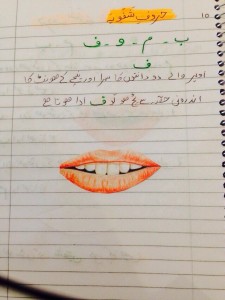 10
حروفِ شفویہ
ب - م - و - ف
ف
اوپر والے دو دانتوں کا سرا اور نیچے کے ہونٹ کا
اندرونی حصے سے مَس ہو تو ف ادا ہوتا ہے